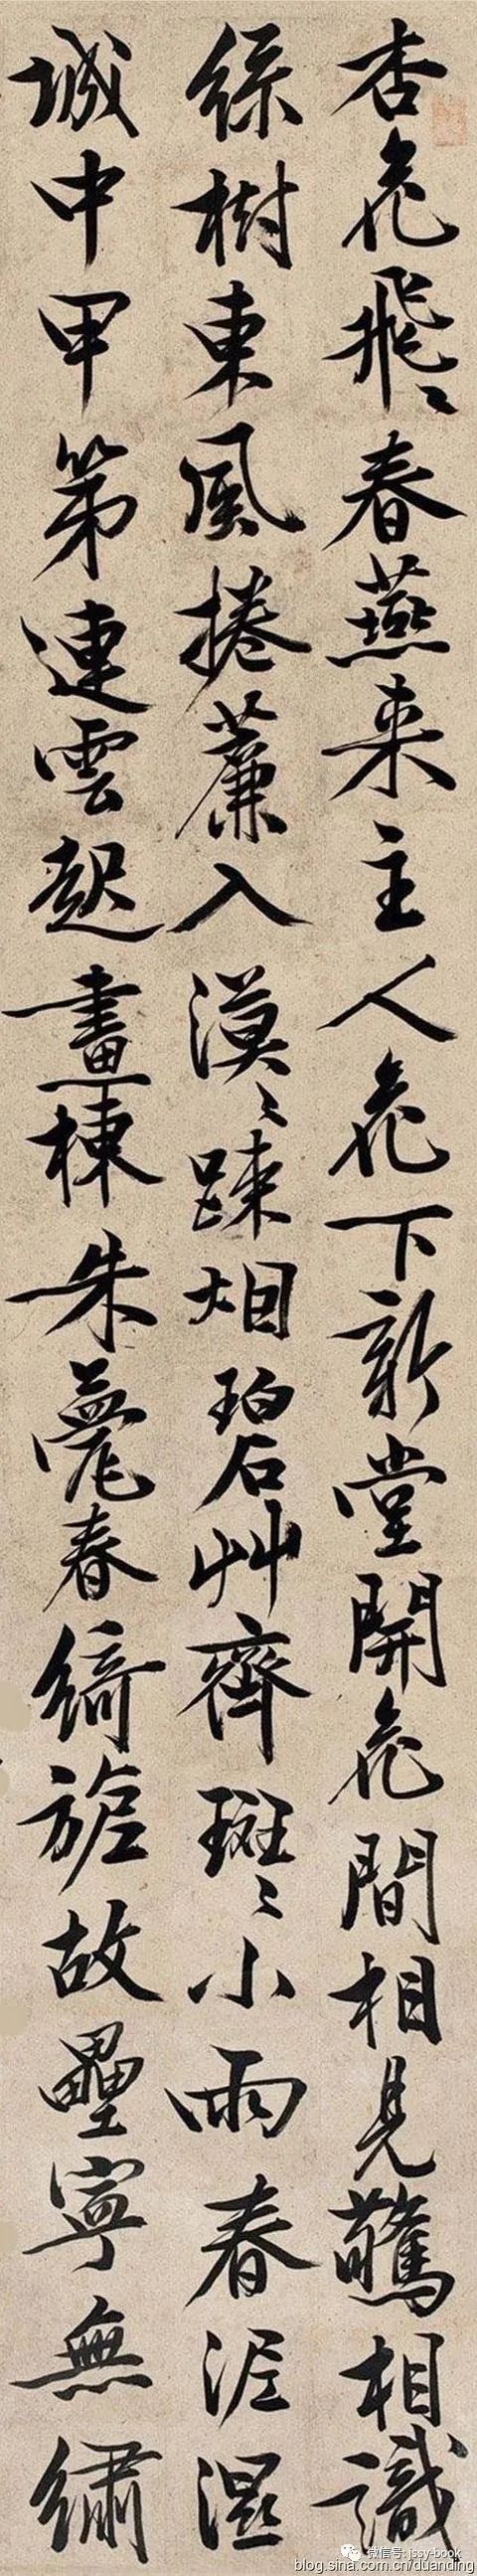 杏花飛〻春燕来主人花下新堂開花間相見驚相識
綠樹東風捲薕入漠〻踈烟碧艸齊斑〻小雨春泥濕
城中甲第連雲起畫棟朱甍春綺旎故壘寧無繡
微信号: jssy-book
blog.sina.com.cn/duanding